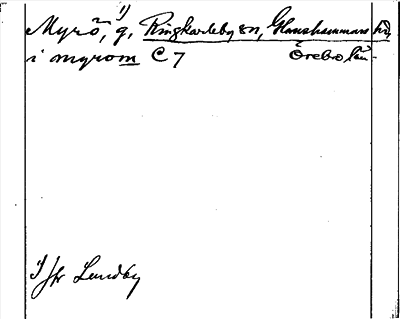 Myrö, ¹⁾ g, Ringkarleby sn, Glanshammars hd,
i myrom C 7 Örebro län.
1) Jfr Lundby